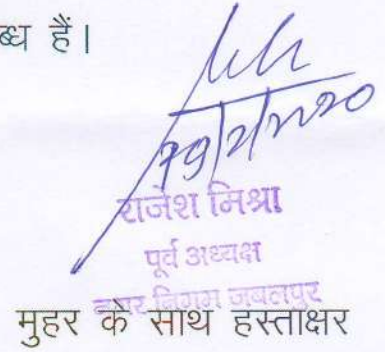 ब्ध हैं।
19/2/2020
राजेश मिश्रा
पूर्व अध्यक्ष
नगर निगम जबलपुर
मुहर के साथ हस्ताक्षर